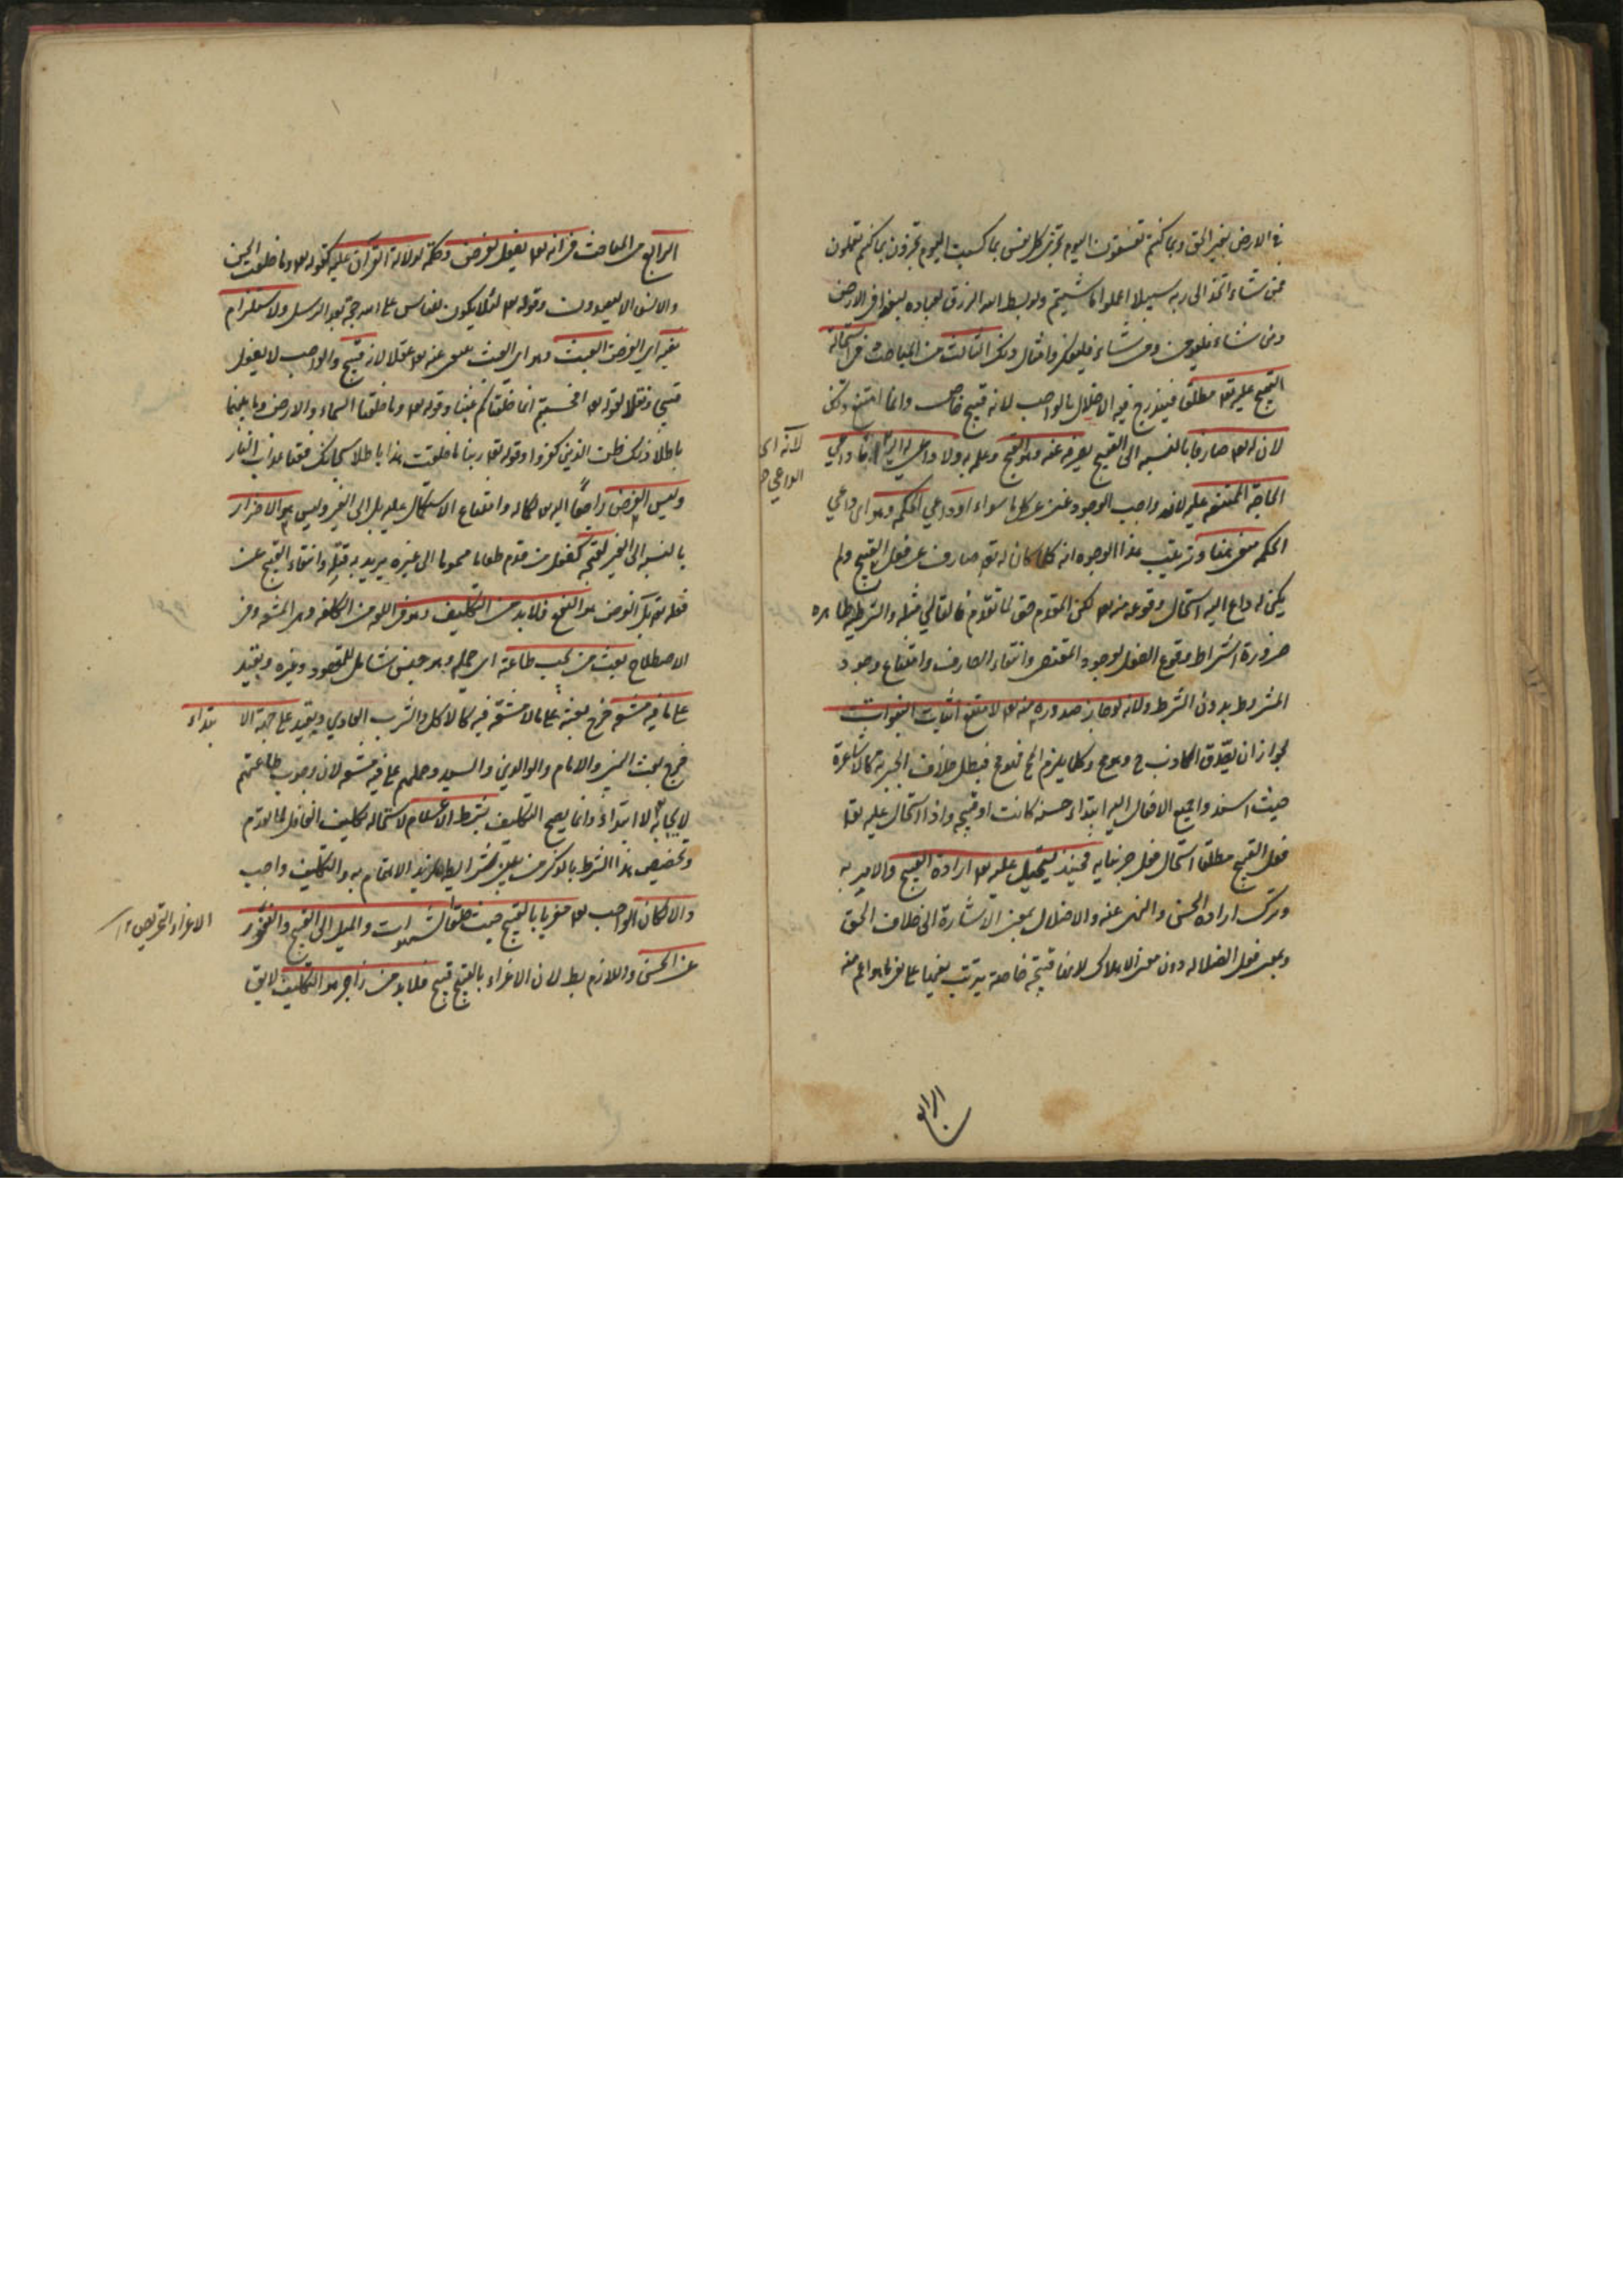 في الارض بغير الحق وبما كنتم تفسقون اليوم تجزى كل نفس بما كسبت اليوم تجزون بما كنتم تعملون
فمن شاء اتخذ الى ربه سبيلا اعملوا ما شئتم ولو بسط الله الرزق لعباده لبغوا في الارض
ومن شاء فليؤمن ومن شاء فليكفر وامثال ذلك الثالث من المباحث في استحالة
القبيح عليه تعا مطلقا فيندرج فيه الاخلال بالواجب لانه قبيح خاص وانما امتنع ذلك
لان له تعا صارفا بالنسبه الى القبيح يصرفه عنه وهو القبح وعلمه به ولا داعي له اليه لانه اما داعي
لانه اى
الداعي
الحاجة الممتنعه عليه لانه واجب الوجود غني عن كل ما سواه او داعي الحكمه وهو اى داعي
الحكمه منفي هنا وترتيب هذا الوجوه انه كلما كان له تعا صارف عن فعل القبيح ولم
يكن له داع اليه استحال وقوعه منه تعا لكن المقدم حق لما تقدم فالتالي مثله والشرطيه ظاهره
ضرورة اشتراط وقوع الفعل لوجود المقتضى وانتفاء الصارف وامتناع وجود
المشروط بدون الشرط ولانه لو جاز صدوره منه تعا لامتنع اثبات النبوات
لجواز ان يصدق الكاذب ح وكلما يلزم المح فهو مح فبطل خلاف الجبرية كالاشاعرة
حيث اسندوا جميع الافعال اليه ابتداء حسنه كانت او قبيحه واذا استحال عليه تعا
فعل القبيح مطلقا استحال فعل جزئياته فحينئذ يستحيل عليه تعا ارادة القبيح والامر به
وترك ارادة الحسن والنهى عنه والاضلال بمعنى الاشارة الى خلاف الحق
وبمعنى فعل الضلاله دون معنى الاهلاك لانها قبيحة خاصة يترتب نفيها على نفي ما هو اعم منه
الرابع
الرابع من المباحث في انه تعا يفعل لغرض وحكمه لدلالة القرآن عليه كقوله تعا وما خلقت الجن
والانس الا ليعبدون وقوله تعا لئلا يكون للناس على الله حجة بعد الرسل ولاستلزام
نفيه اي الغرض العبث وهو اى العبث منفى عنه تعا عقلا لانه قبيح والواجب لا يفعل
قبيحا ونقلا لقوله تعا افحسبتم انما خلقناكم عبثا وقوله تعا وما خلقنا السماء والارض وما بينهما
باطلا ذلك ظن الذين كفروا وقوله تعا ربنا ما خلقت هذا باطلا سبحانك فقنا عذاب النار
وليس الغرض راجعا اليه تعا لكماله وامتناع الاستكمال عليه بل الى الغير وليس هو الاضرار
بالنسبه الى الغير لقبحه كفعل من قدم طعاما مسموما الى غيره يريد به قتله وانتفاء القبيح عن
فعله تعا بل الغرض هو النفع فلابد من التكليف وهو في اللغه من الكلفه وهى المشقه وفي
الاصطلاح بعث من يجب طاعته اى حمله وهو جنس شامل للمقصود وغيره وبقيد
على ما فيه مشقه خرج بعثه على ما لا مشقة فيه كالاكل والشرب العادي وبقيد على جهة الابتداء
خرج بعث النبي والامام والوالدين والسيد وحملهم على ما فيه مشقه لان وجوب طاعتهم
لايجابه لا ابتداء وانما يصح التكليف بشرط الاعلام لاستحاله تكليف الغافل لما تقدم
وتخصيص هذا الشرط بالذكر من بين شرايطه لمزيد الاهتمام به والتكليف واجب
والا لكان الواجب تعا مغريا بالقبيح حيث خلق الشهوات والميل الى القبيح والنفور
الاغراء التحريص
عن الحسن واللازم بط لان الاغراء بالقبيح قبيح فلابد من زاجر هو التكليف لايق